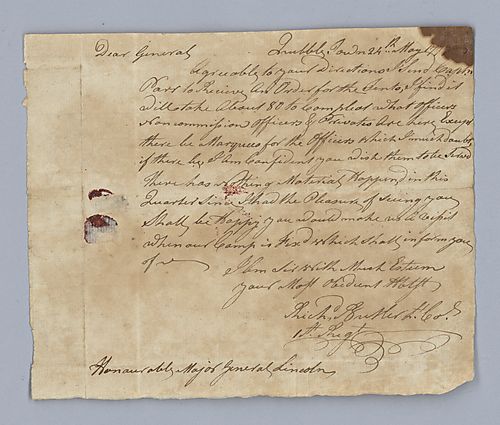 Dear General Quibble Town 24th May 177
Agreeable to your Directions I Send Captn
Parr to Recieve An Order for the Tents, I find it
will take About 80 to Compleat what Officers
Noncommission Officers & Privates Are here Except
there be Marquees for the Officers which I much doubt,
if there be, I Am Confident you wish them to be
There has nothing Material Happend in this
Quarter Since I had the Pleasure of Seeing you
Shall be Happy you would make us a Visit
when our Camp is fixd which Shall inform you
of
I Am Sir with Much Esteem
your Most Obedient Hble St
Richd Butler Lt. Col.
1st Regt
Honourable Major General Lincoln